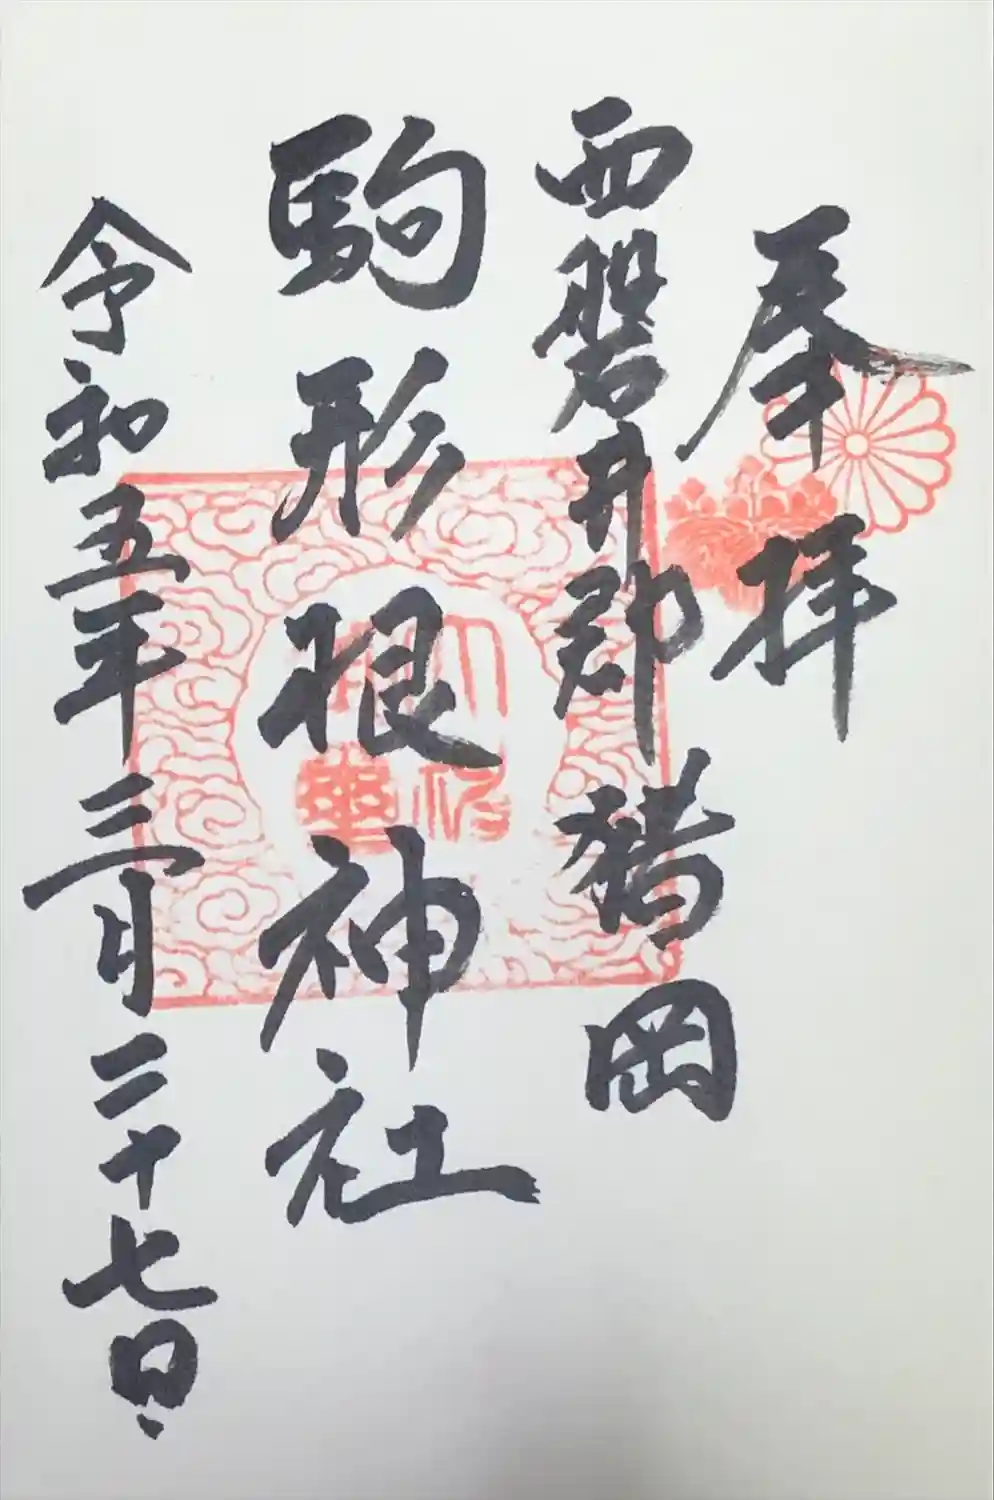 奉拝
西磐井郡猪岡
駒形根神社
令和五年三月二十七日